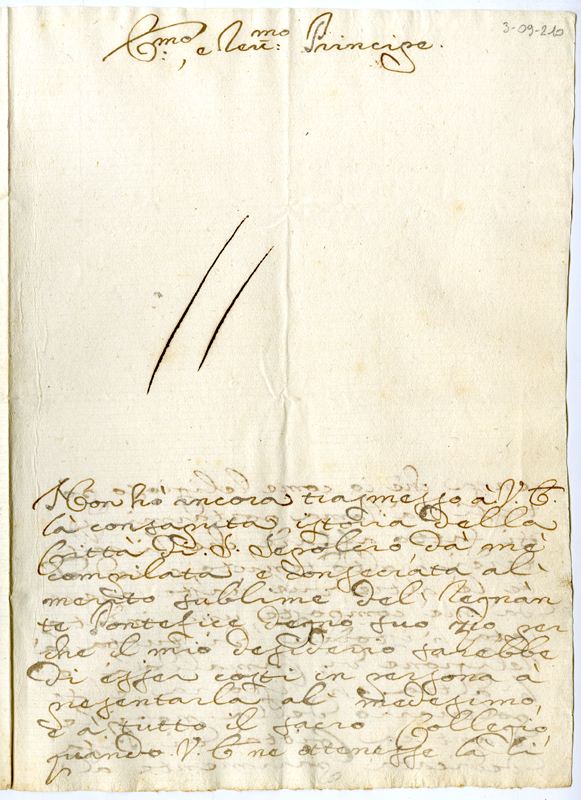 3-09-210
Em.mo e Rev.mo Principe.
Non hò ancora trasmesso à V. E.
là consaputa istoria della
Città di S. Sepolcro dà mè
compilata, e consecrata al
merito sublime del Regnan
te Pontefice degno suo Zio per
che il mio desiderio sarebbe
di esser costì in persona à
presentarla al medesimo,
è à tutto il sacro Collegio,
quando V. E. ne ottenesse la li